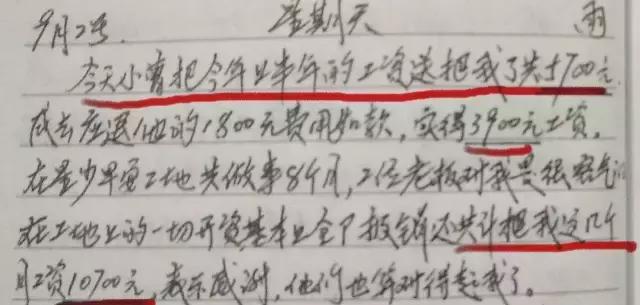 9月2号. 星期天 雨
今天小曾把今年上半年的工资送把我了共5700元
成去应退他的1800元费用如款,实得3900元工资.
在星沙早西工地共做事8个月,2位老板对我是很客气
在工地上的一切开资基本上全部报销还共计把我这几个
月工资10700元,表示感谢,他们也算对得起我了。